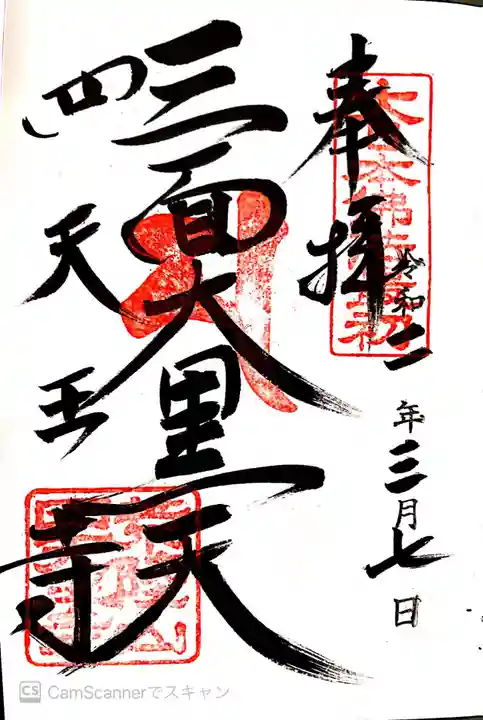 奉拝
大日本佛法最初
令和二年三月七日
三面大黒天
四天王寺
CS CamScannerでスキャン